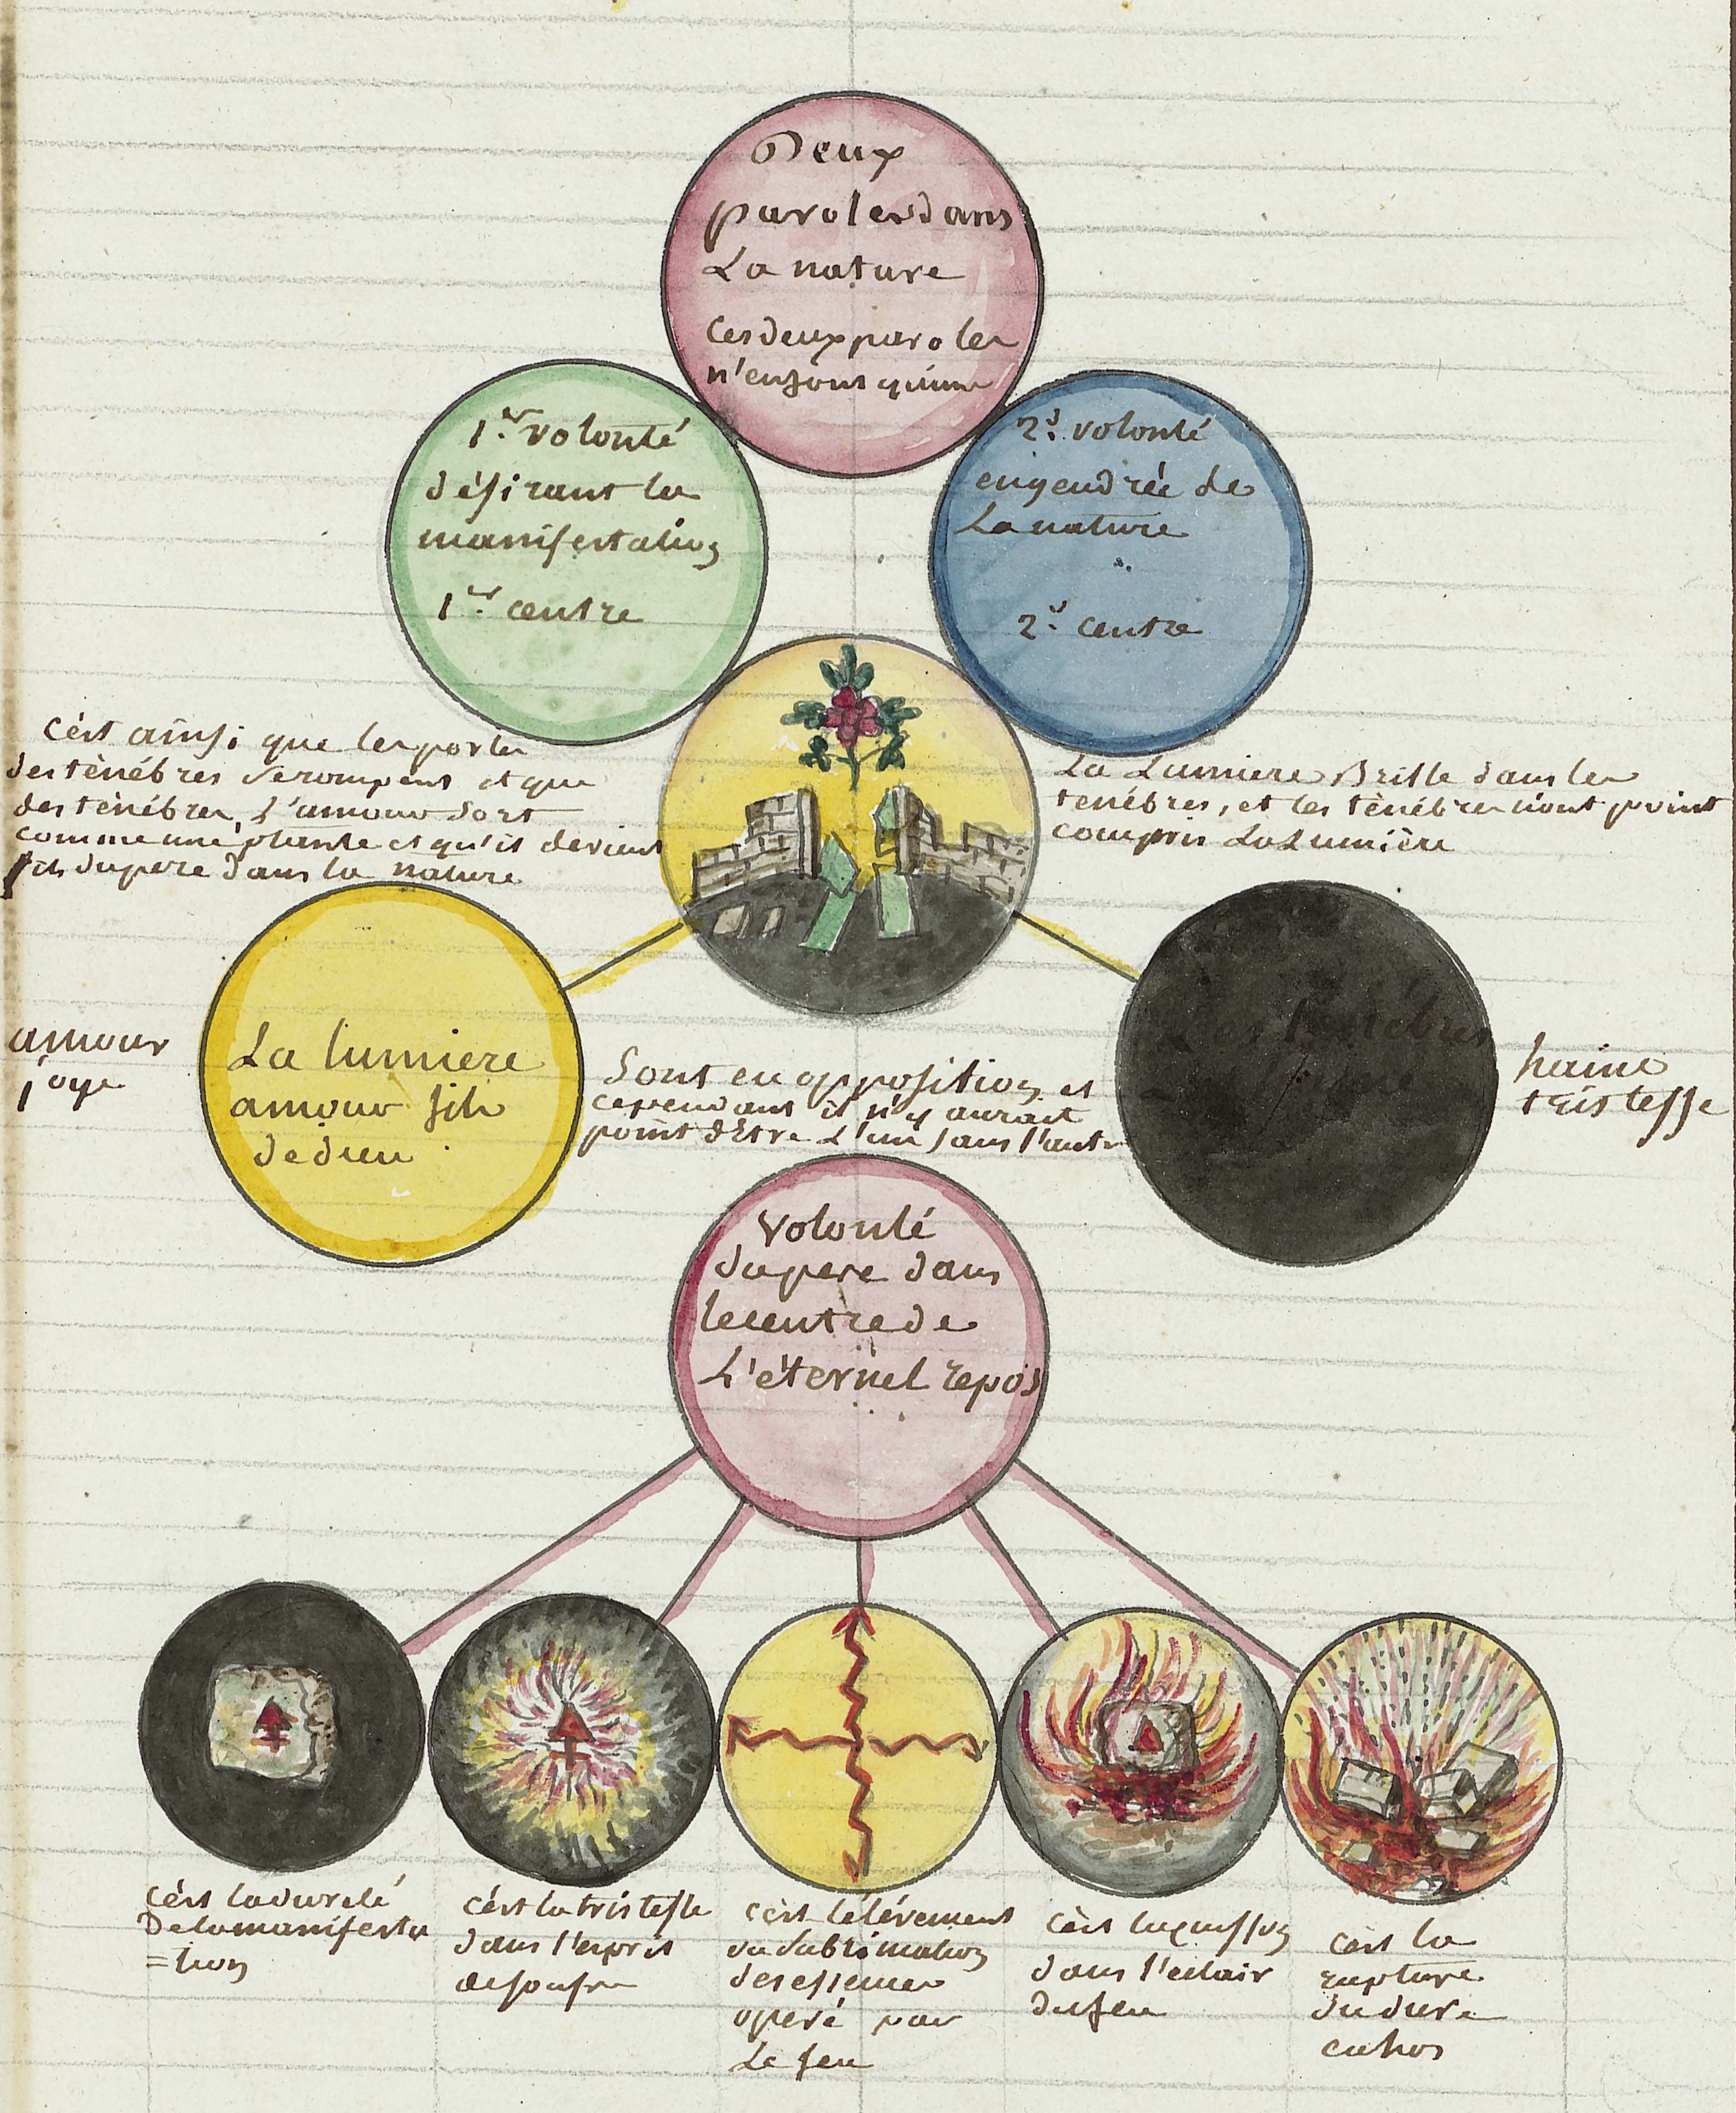 Deux
paroles dans
La nature
Ces deux paroles
n'en sont qu'une
1.re volonté
désirant la
manifestation
1.er centre
2.de volonté
engendrée de
La nature
2.d centre
C'est ainsi que les portes
des ténébres se rompent et que
des ténébres L'amour sort
comme une plante et qu'il devient
fils du pere dans la nature
La Lumiere Brille dans les
tenébres, et les ténébres n'ont point
compris La Lumière
amour
joye
La lumiere
amour fils
de dieu
Sont en opposition, et
cependant il n'y aurait
point d'Etre L'un sans l'autre
Les tenébres
haine
tristesse
Volonté
du pere dans
le centre de
L'éternel repos
C'est la dureté
De la manifesta
=tion
C'est la tristesse
dans l'esprit
de soufre
C'est l'élévement
ou sublimation
des essences
operé par
Le feu
C'est la
dans l'éclair
du feu
C'est la
rupture
du dure
cahos